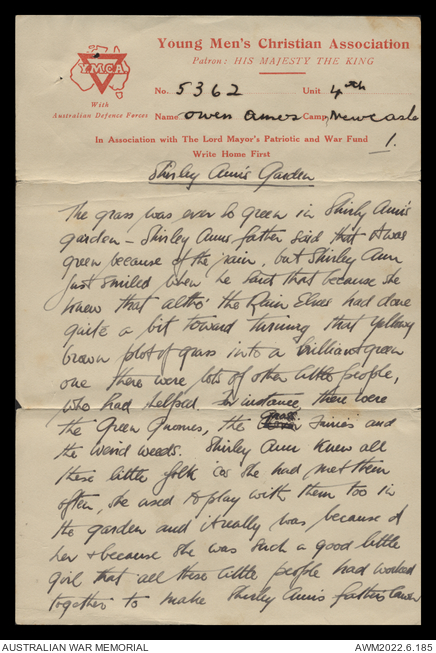 Young Men's Christian Association
Patron: HIS MAJESTY THE KING
Y.M.C.A
With
Australian Defence Forces
No. 5362 Unit 4th
Name Owen Amos Camp Newcastle
In Association with The Lord Mayor's Patriotic and War Fund
Write Home First
1.
Shirley Ann's Garden
The grass was ever so green in Shirly Ann's
garden – Shirley Anns father said that it was
green because of the rain, but Shirley Ann
just smiled when he said that because she
knew that altho' the Rain Elves had done
quite a bit toward turning that yellowy
brown plot of grass into a brilliant green
one there were lots of other little people,
who had helped. for instance, there were
the Green Gnomes, the Grass Fairies and
the weird weeds. Shirley Ann knew all
these little folk cos she had met them
often, she used to play with them too in
the garden and it really was because of
her + because she was such a good little
girl that all these little people had worked
together to make Shirley Ann's fathers lawn
AUSTRALIAN WAR MEMORIAL
AWM2022.6.185